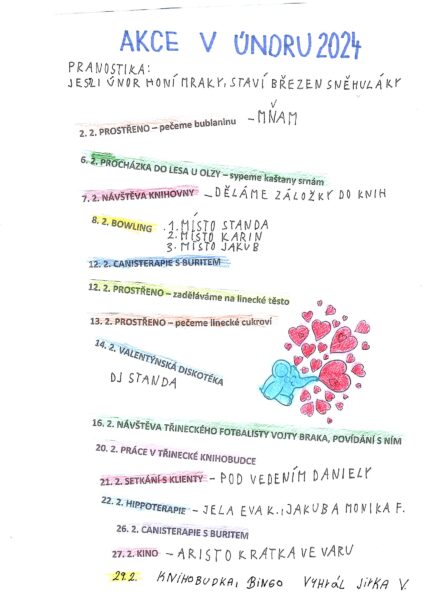 AKCE V ÚNORU 2024
PRANOSTIKA:
JESLI ÚNOR HONÍ MRAKY, STAVÍ BŘEZEN SNĚHULÁKY
2. 2. PROSTŘENO – pečeme bublaninu – MŇAM
6. 2. PROCHÁZKA DO LESA U OLZY – sypeme kaštany srnám
7. 2. NÁVŠTĚVA KNIHOVNY – DĚLÁME ZÁLOŽKY DO KNIH
8. 2. BOWLING . 1. MÍSTO STANDA
2. MÍSTO KARIN
3. MÍSTO JAKUB
12. 2. CANISTERAPIE S BURITEM
12. 2. PROSTŘENO – zaděláváme na linecké těsto
13. 2. PROSTŘENO – pečeme linecké cukroví
14. 2. VALENTÝNSKÁ DISKOTÉKA
DJ STANDA
16. 2. NÁVŠTĚVA TŘINECKÉHO FOTBALISTY VOJTY BRAKA, POVÍDÁNÍ S NÍM
20. 2. PRÁCE V TŘINECKÉ KNIHOBUDCE
21. 2. SETKÁNÍ S KLIENTY – POD VEDENÍM DANIELY
22. 2. HIPPOTERAPIE – JELA EVA K., JAKUB A MONIKA F.
26. 2. CANISTERAPIE S BURITEM
27. 2. KINO – ARISTOKRATKA VE VARU
29.2. KNIHOBUDKA, BINGO VYHRÁL JIRKA V.